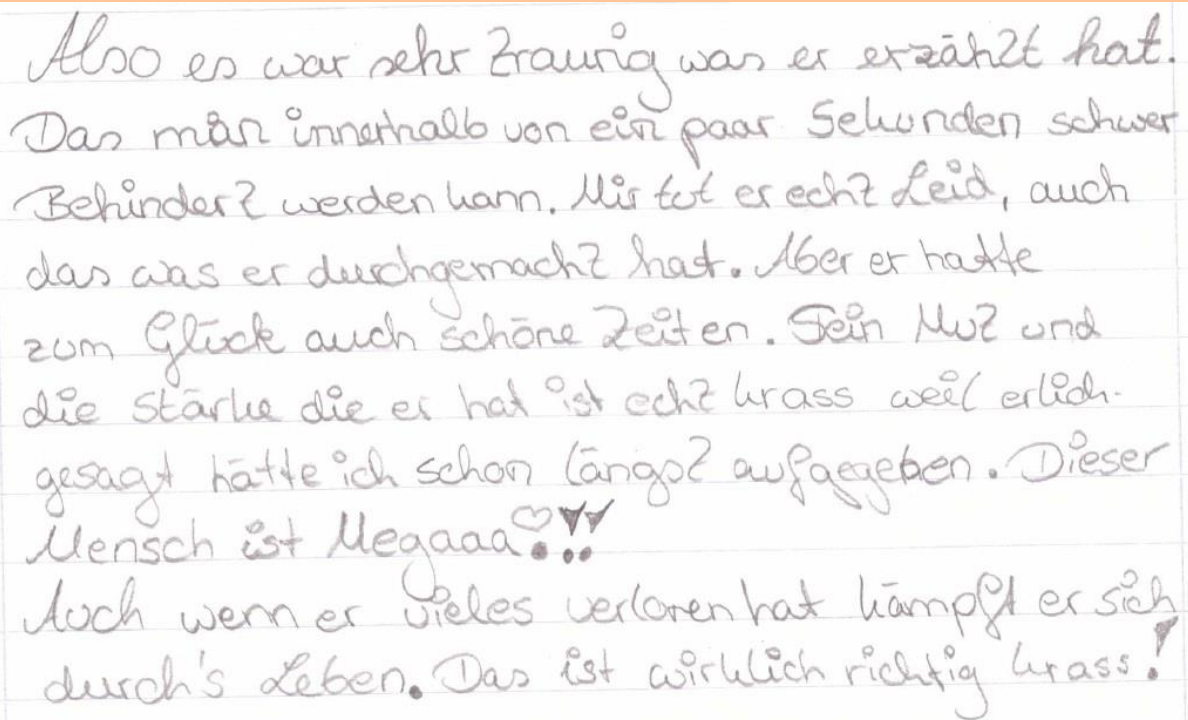 Also es war sehr traurig was er erzählt hat.
Das man innerhalb von ein paar Sekunden schwer
Behindert werden kann. Mir tut er echt Leid, auch
das was er durchgemacht hat. Aber er hatte
zum Glück auch schöne Zeiten. Sein Mut und
die Stärke die er hat ist echt krass weil erlich
gesagt hätte ich schon längst aufgegeben. Dieser
Mensch ist Megaaa!!!
Auch wenn er vieles verloren hat kämpft er sich
durch's Leben. Das ist wirklich richtig krass!